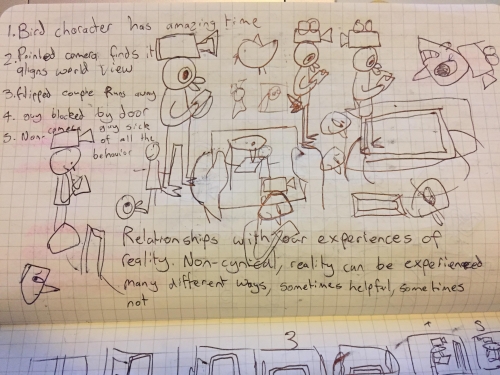 1. Bird character has amazing time
2. Pointed camera finds it
aligns world view
3. Flipped couple Runs away
4. guy blocked by door
5. Non-camera guy sick
of all the
behavior
Relationships with our experiences of
reality. Non-cynical, reality can be experienced
many different ways, sometimes helpful, sometimes
not
3
5